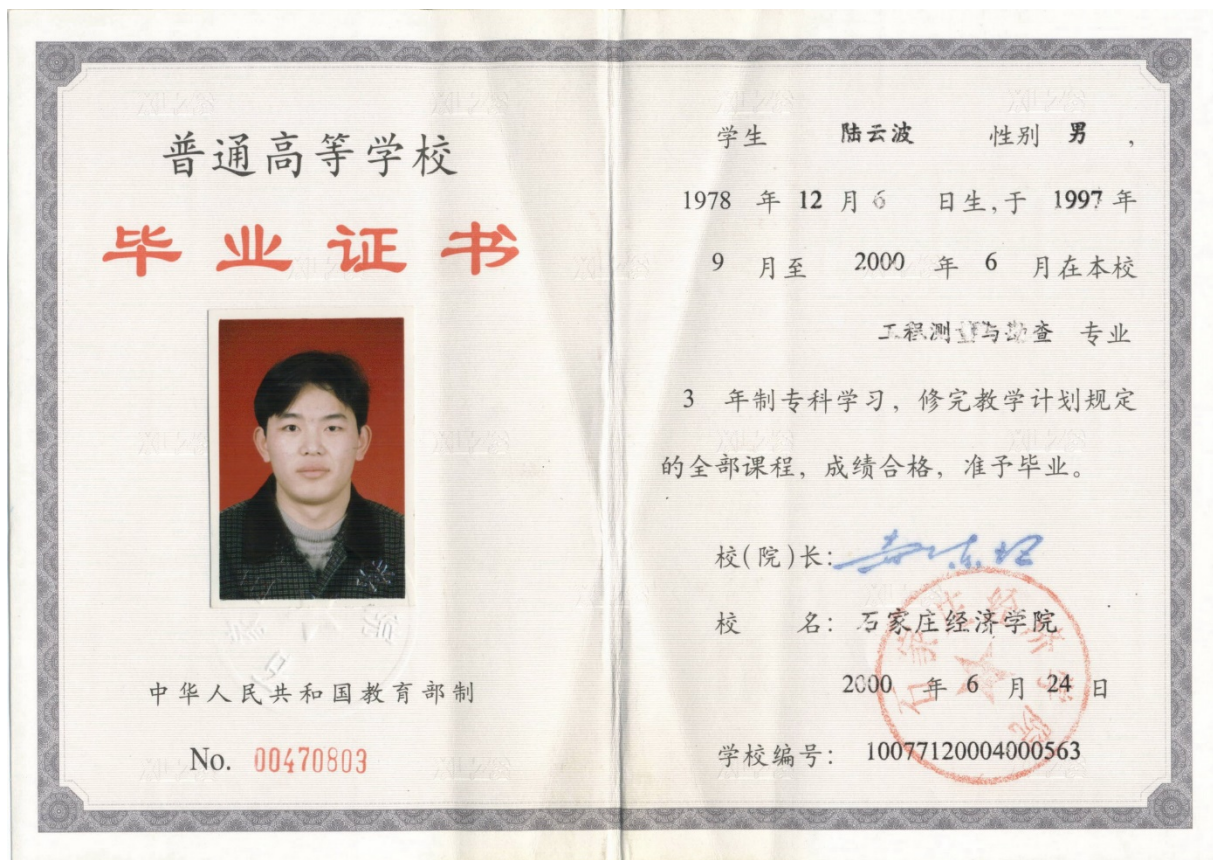 普通高等学校
毕业证书
中华人民共和国教育部制
No. 00470803
学生 陆云波 性别 男 ,
1978 年 12 月 6 日生,于 1997 年
9 月至 2000 年 6 月在本校
工程测量与勘查 专业
3 年制专科学习，修完教学计划规定
的全部课程，成绩合格，准予毕业。
校(院)长:
校 名: 石家庄经济学院
2000 年 6 月 24 日
学校编号: 10077120004000563
石家庄经济学院